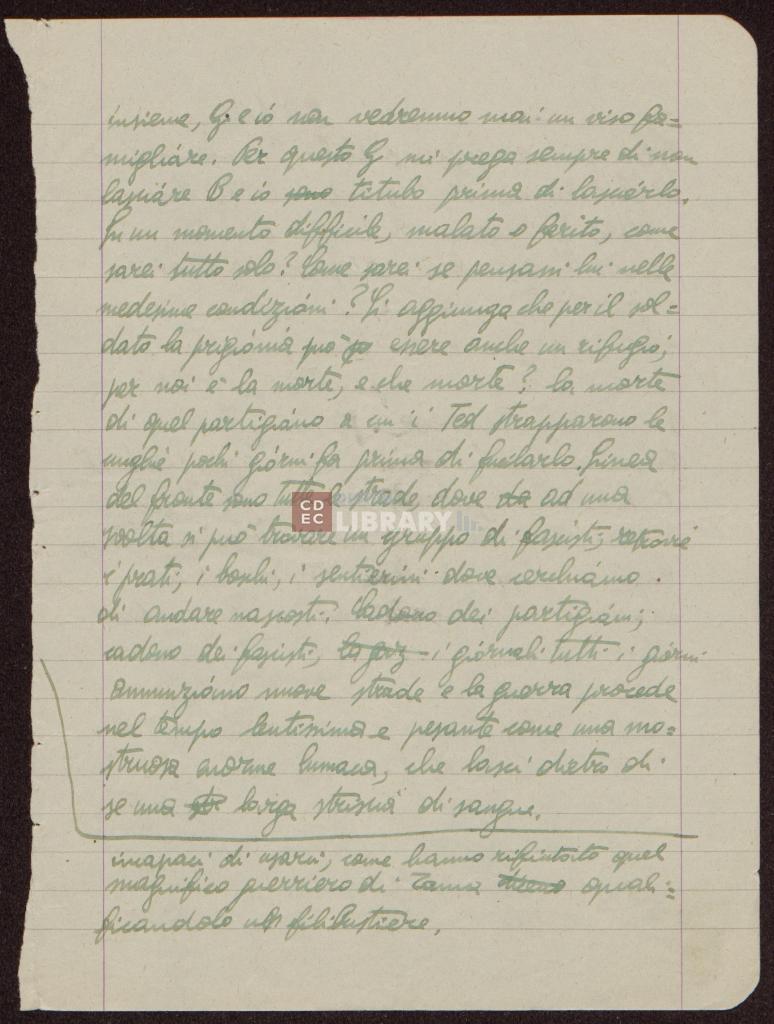 insieme, G. e io non vedremmo mai un viso fa=
migliare. Per questo G mi prega sempre di non
lasciare B e io sono titubo prima di lasciarlo.
In un momento difficile, malato o ferito, come
sarei tutto solo? Come sarei se pensassi lui nelle
medesime condizioni? Si aggiunga che per il sol=
dato la prigionia può essere anche un rifugio;
per noi è la morte, e che morte? la morte
di quel partigiano a cui i Ted strapparono le
unghie pochi giorni fa prima di fucilarlo. Linea
del fronte sono tutte le strade, dove da ad una
svolta si può trovare un gruppo di fascisti,
i prati, i boschi, i sentierini dove cerchiamo
di andare nascosti. Cadono dei partigiani;
cadono dei fascisti, i giornali tutti i giorni
annunziano nuove strade e la guerra procede
nel tempo lentissima e pesante come una mo=
struosa enorme lumaca, che lasci dietro di
se una larga striscia di sangue.
incapaci di usarci, come hanno rifiutato quel
magnifico guerriero di quali=
ficandolo un filibustiere.
CD
EC
LIBRARY